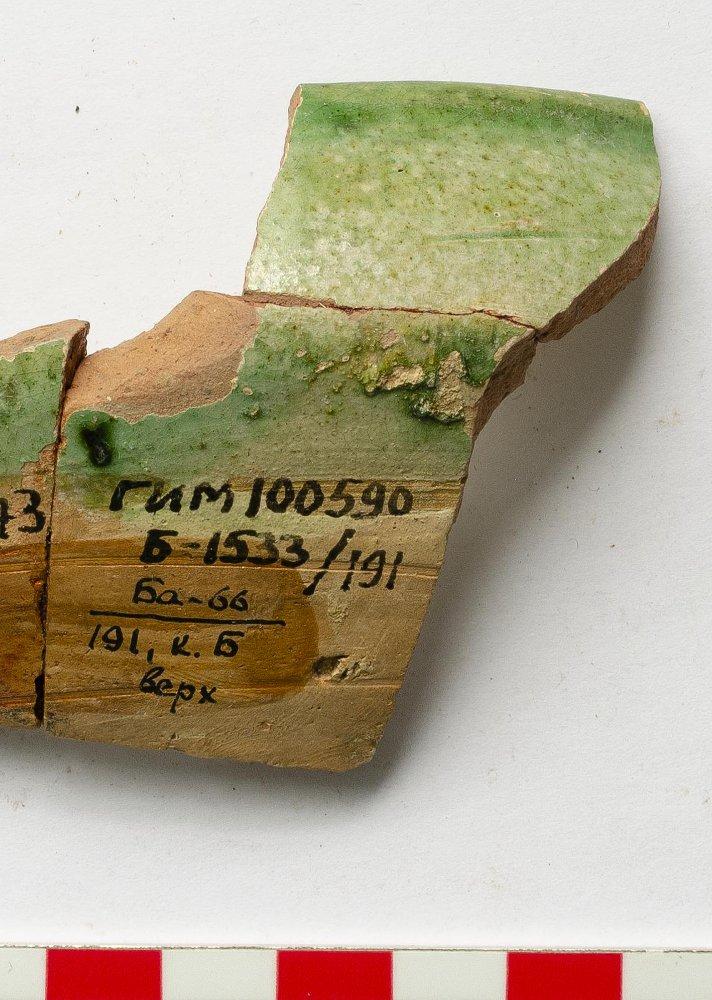 ГИМ 100590
Б-1533/191
Ба-66
191, к. Б
верх
43